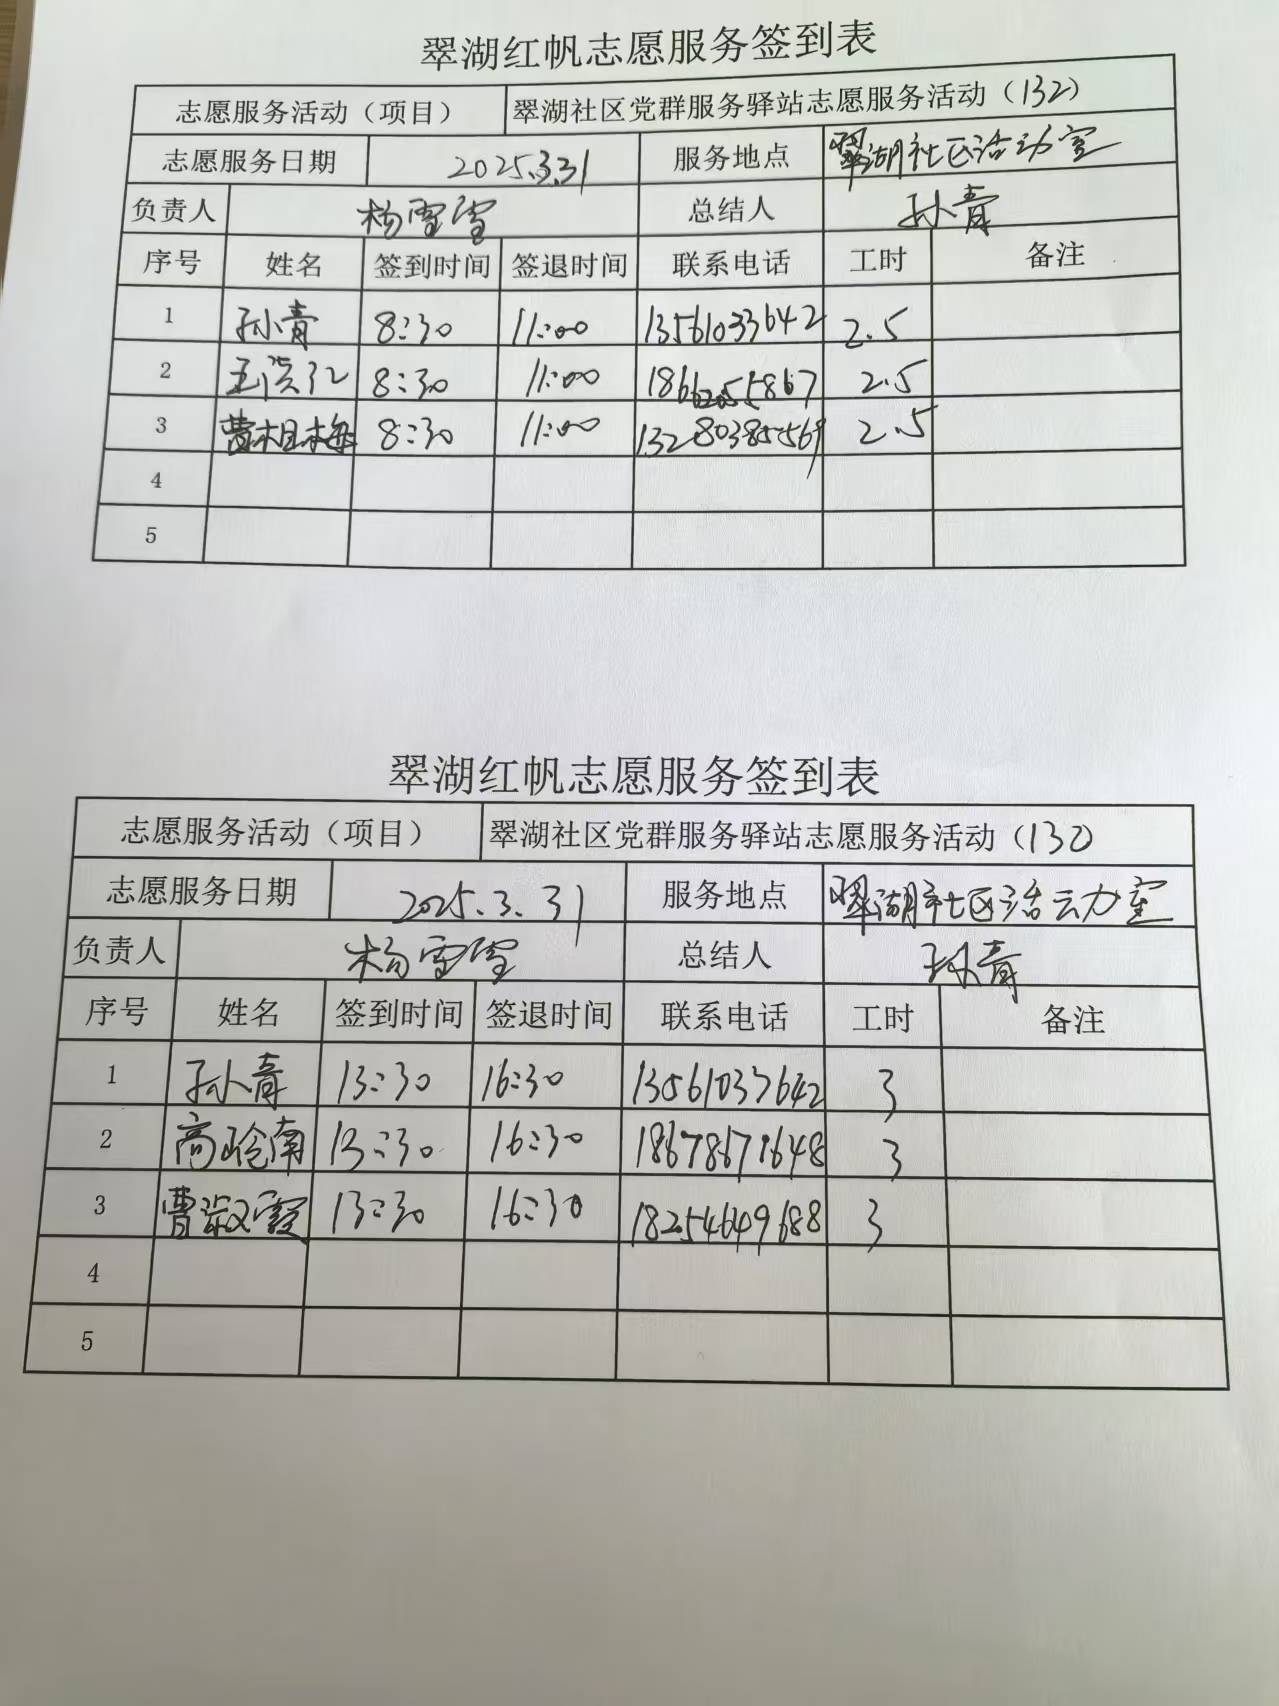 翠湖红帆志愿服务签到表
志愿服务活动（项目） 翠湖社区党群服务驿站志愿服务活动（132）
志愿服务日期 2025.3.31 服务地点 翠湖社区活动室
负责人 杨雪雪 总结人 孙青
序号 姓名 签到时间 签退时间 联系电话 工时 备注
1 孙青 8:30 11:00 13561033642 2.5
2 8:30 11:00 2.5
3 曹相梅 8:30 11:00 13280385569 2.5
4
5
翠湖红帆志愿服务签到表
志愿服务活动（项目） 翠湖社区党群服务驿站志愿服务活动（132）
志愿服务日期 2025.3.31 服务地点 翠湖社区活动室
负责人 杨雪雪 总结人 孙青
序号 姓名 签到时间 签退时间 联系电话 工时 备注
1 孙青 13:30 16:30 13561033642 3
2 高玲南 13:30 16:30 18678671648 3
3 曹淑霞 13:30 16:30 18254649688 3
4
5